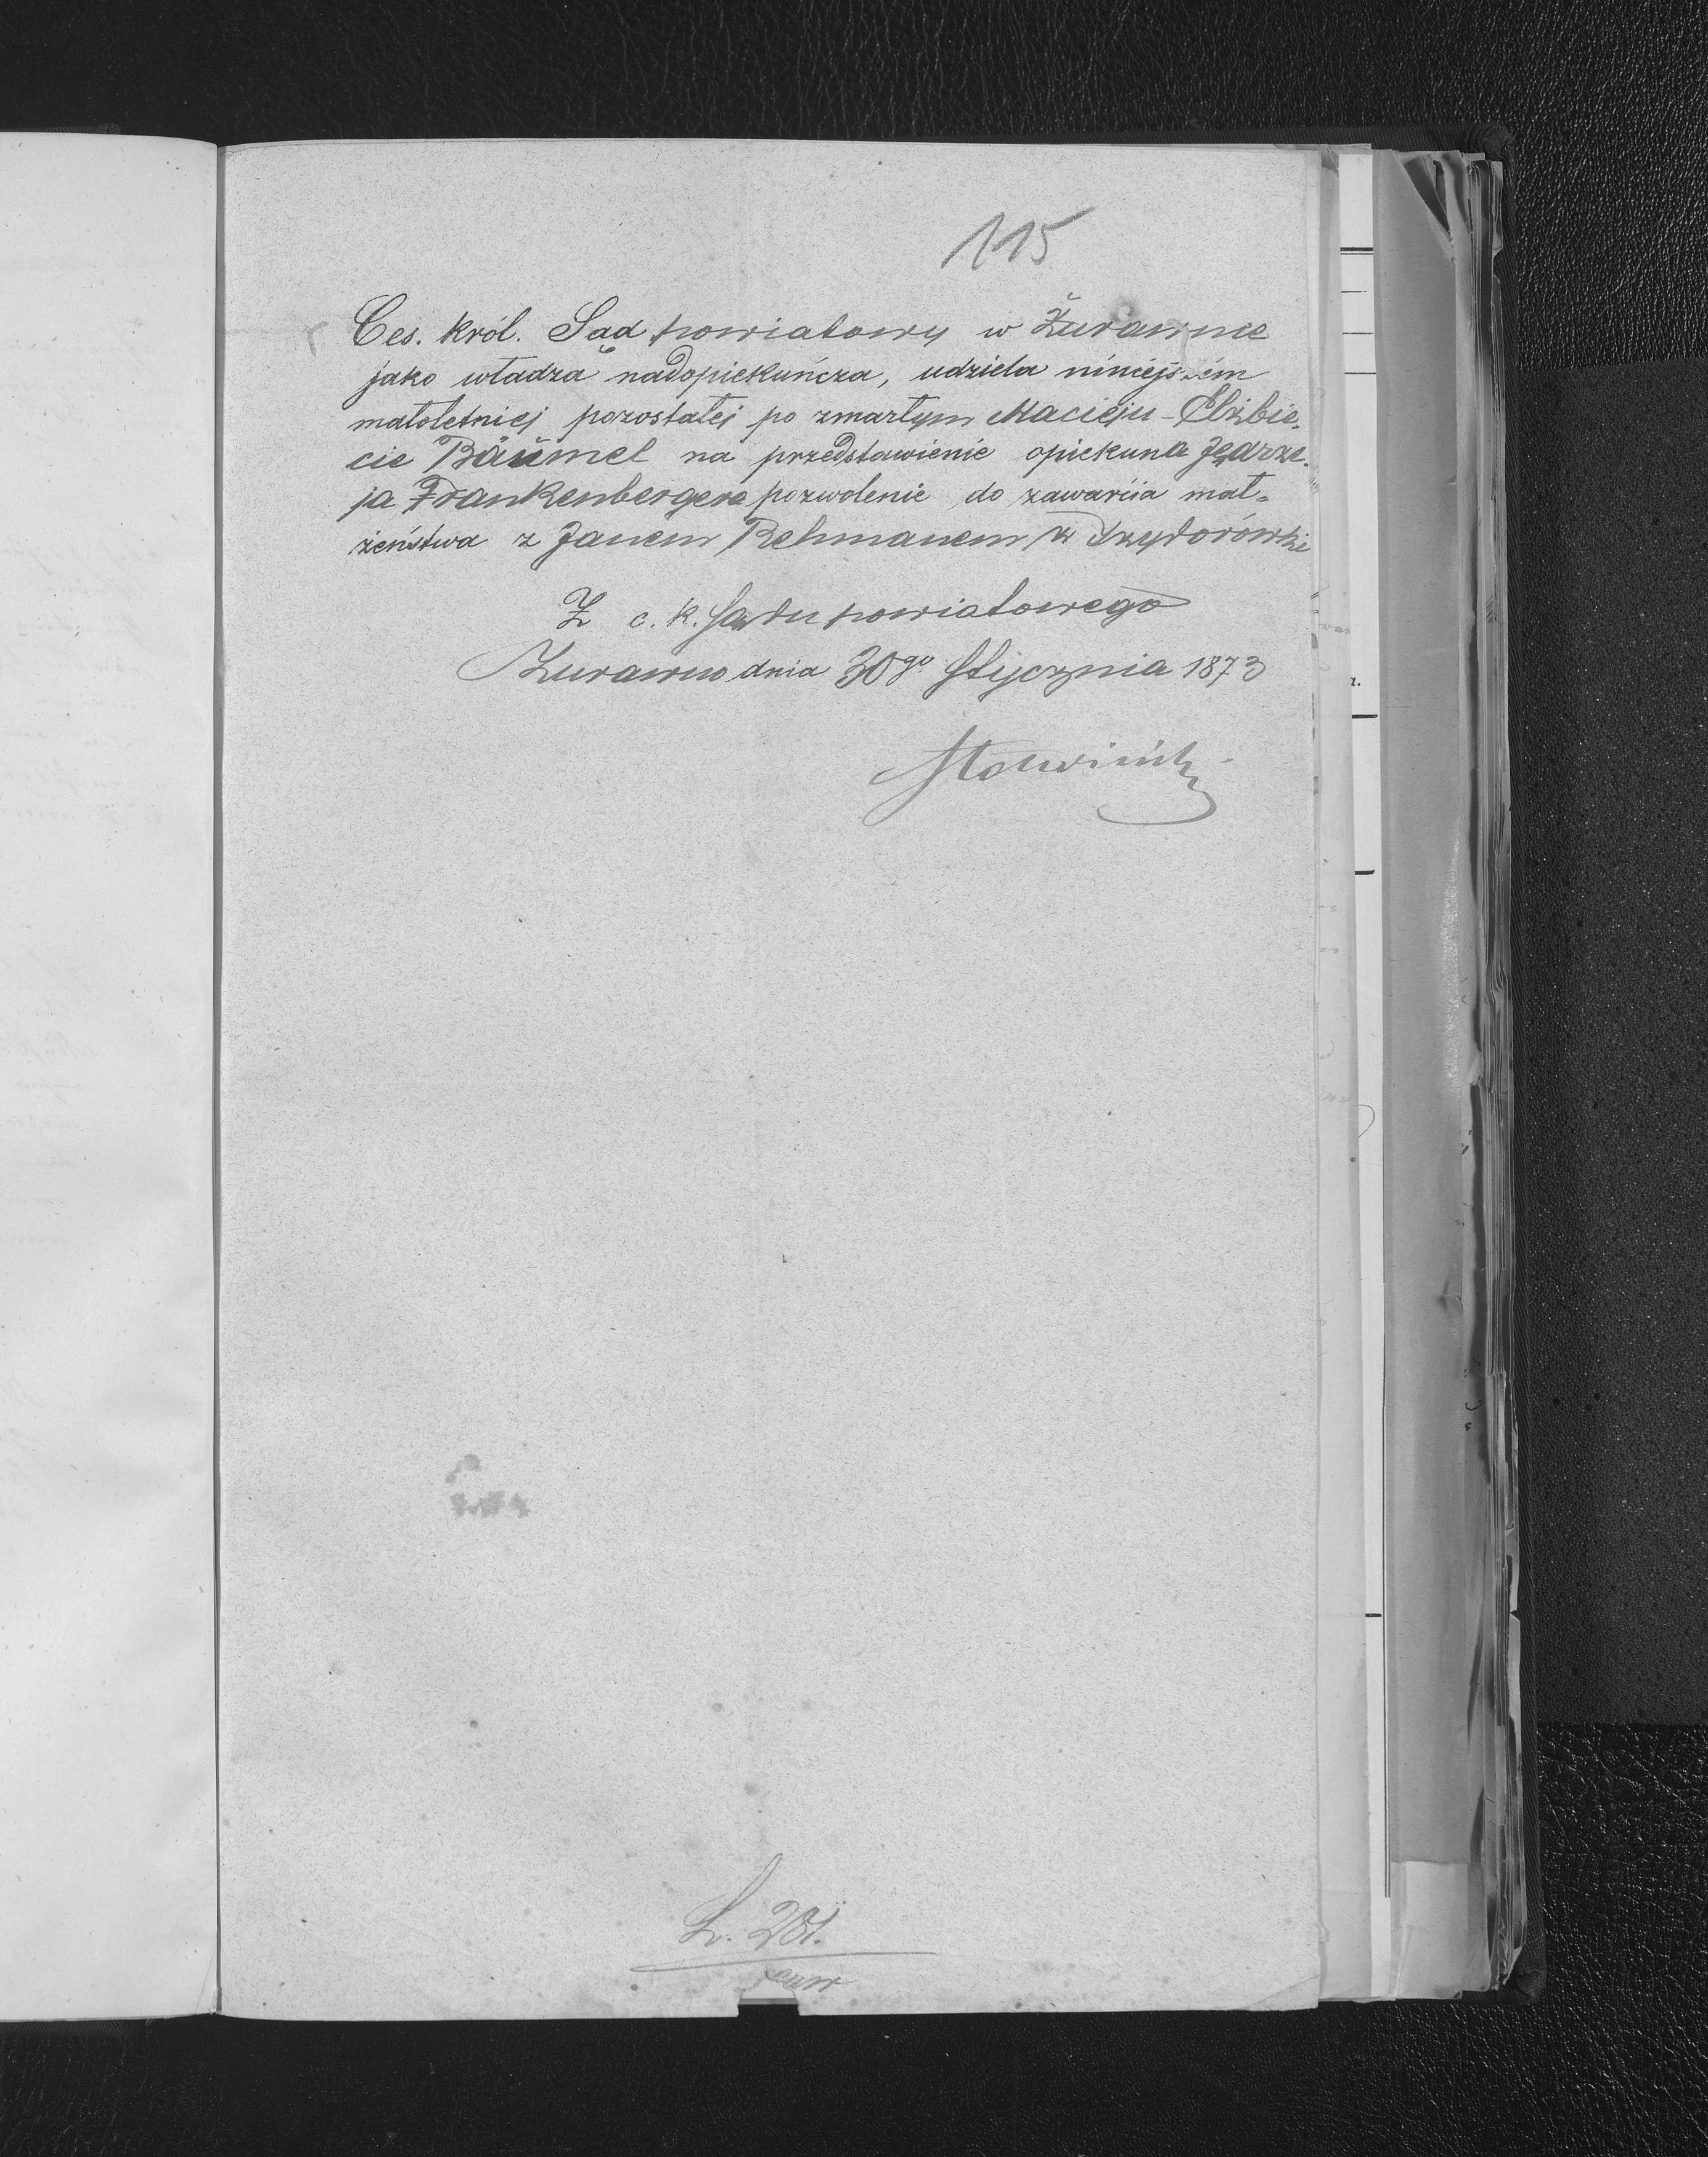 115
Ces. król. Sąd powiatowy w Żurawnie
jako władza nadopiekuńcza, udziela niniejszém
małoletniej pozostałej po zmarłym Macieju - Elżbie-
cie Bäumel na przedstawienie opiekuna Jędrze-
ja Frankenbergera pozwolenie do zawarcia mał-
żeństwa z Janem Rehmanem z Izydorówki
Z c. k. Sądu powiatowego
Żurawno dnia 30go Stycznia 1873
L. 281.